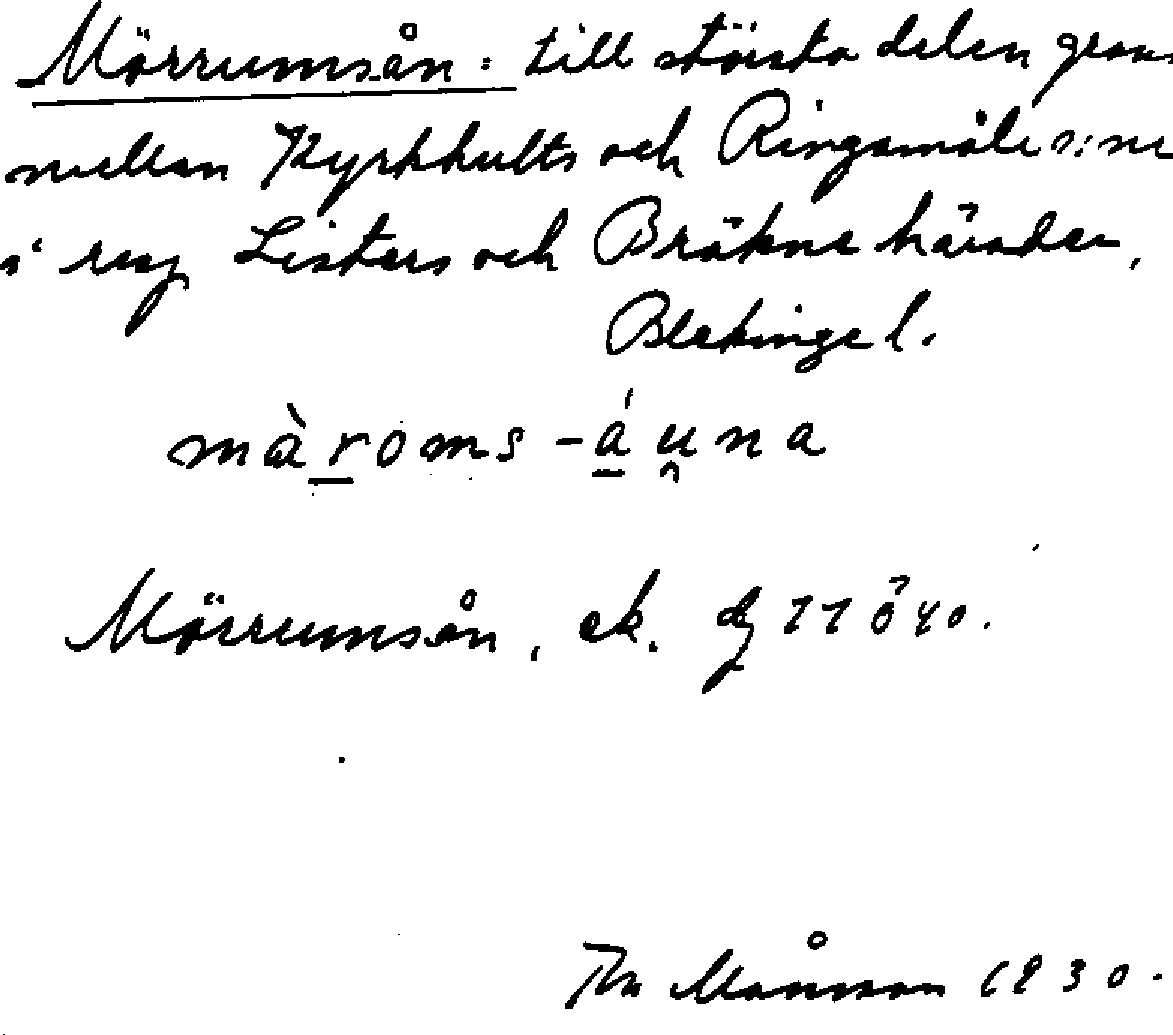 Mörrumsån: till största delen gräns
mellan Kyrkhults och Ringamåla s:nr
i resp Listers och Bräkne härader,
Blekinge l.
màroms-áu̯na
Mörrumsån, ek.
Månsson 1930.